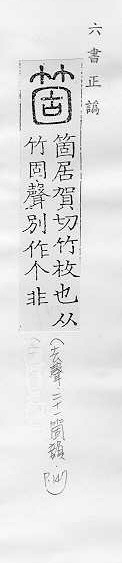 六書正譌
箇
箇居賀切竹枚也从
竹固聲別作个非
(去聲二十一箇韻
P.147)